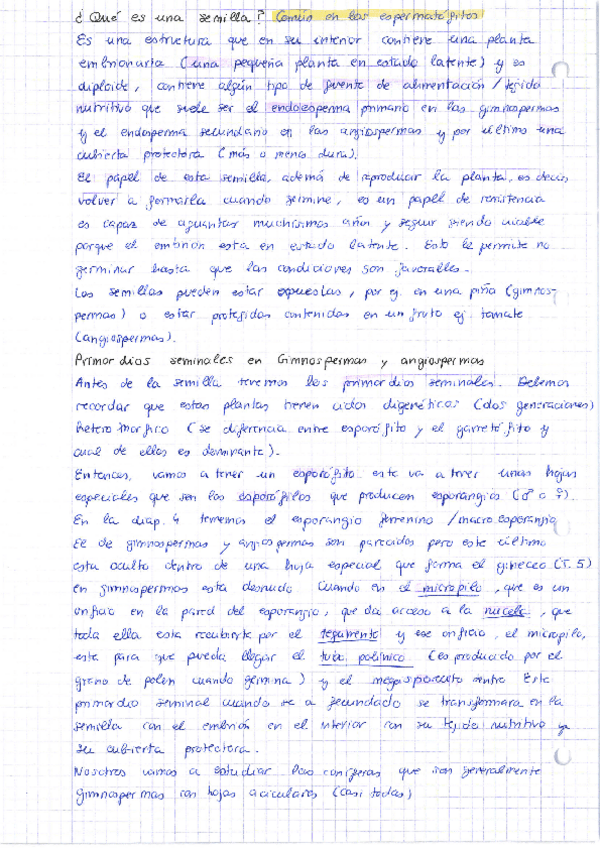 ¿Qué es una semilla? Común en las espermatófitos
Es una estructura que en su interior contiene una planta
embrionaria (una pequeña planta en estado latente) y es
diploide, contiene algún tipo de fuente de alimentación/tejido
nutritivo que suele ser el endosperma primario en las gimnospermas
y el endosperma secundario en las angiospermas y por último una
cubierta protectora (más o menos dura).
El papel de esta semilla, además de reproducir la planta, es decir,
volver a formarla cuando germine, es un papel de resistencia
es capaz de aguantar muchísimos años y seguir siendo viable
porque el embrión esta en estado latente. Esto le permite no
germinar hasta que las condiciones son favorables.
Las semillas pueden estar expuestas, por ej. en una piña (gimnos-
permas) o estar protegidas contenidas en un fruto ej. tomate
(angiospermas).
Primordios seminales en Gimnospermas y angiospermas
Antes de la semilla tenemos los primordios seminales. Debemos
recordar que estas plantas tienen ciclos digenéticos (dos generaciones)
heteromorfico (se diferencia entre esporófito y el gametófito y
cual de ellos es dominante).
Entonces, vamos a tener un esporófito este va a tener unas hojas
especiales que son los esporófilos que producen esporangios (♂ o ♀).
En la diap. 4 tenemos el esporangio femenino /macroesporangio
El de gimnospermas y angiospermas son parecidos pero este último
esta oculto dentro de una hoja especial que forma el gineceo (T. 5)
en gimnospermas esta desnudo. Cuando en el micropilo, que es un
orificio en la pared del esporangio, que da acceso a la nucela, que
toda ella esta recubierta por el tegumento y ese orificio, el micropilo,
esta para que pueda llegar el tubo polínico (es producido por el
grano de polen cuando germina) y el megasporocito entre Este
primordio seminal cuando se a fecundado se transformara en la
semilla con el embrión en el interior con su tejido nutritivo y
su cubierta protectora.
Nosotros vamos a estudiar las coníferas que son generalmente
gimnospermas con hojas aciculares (casi todas)